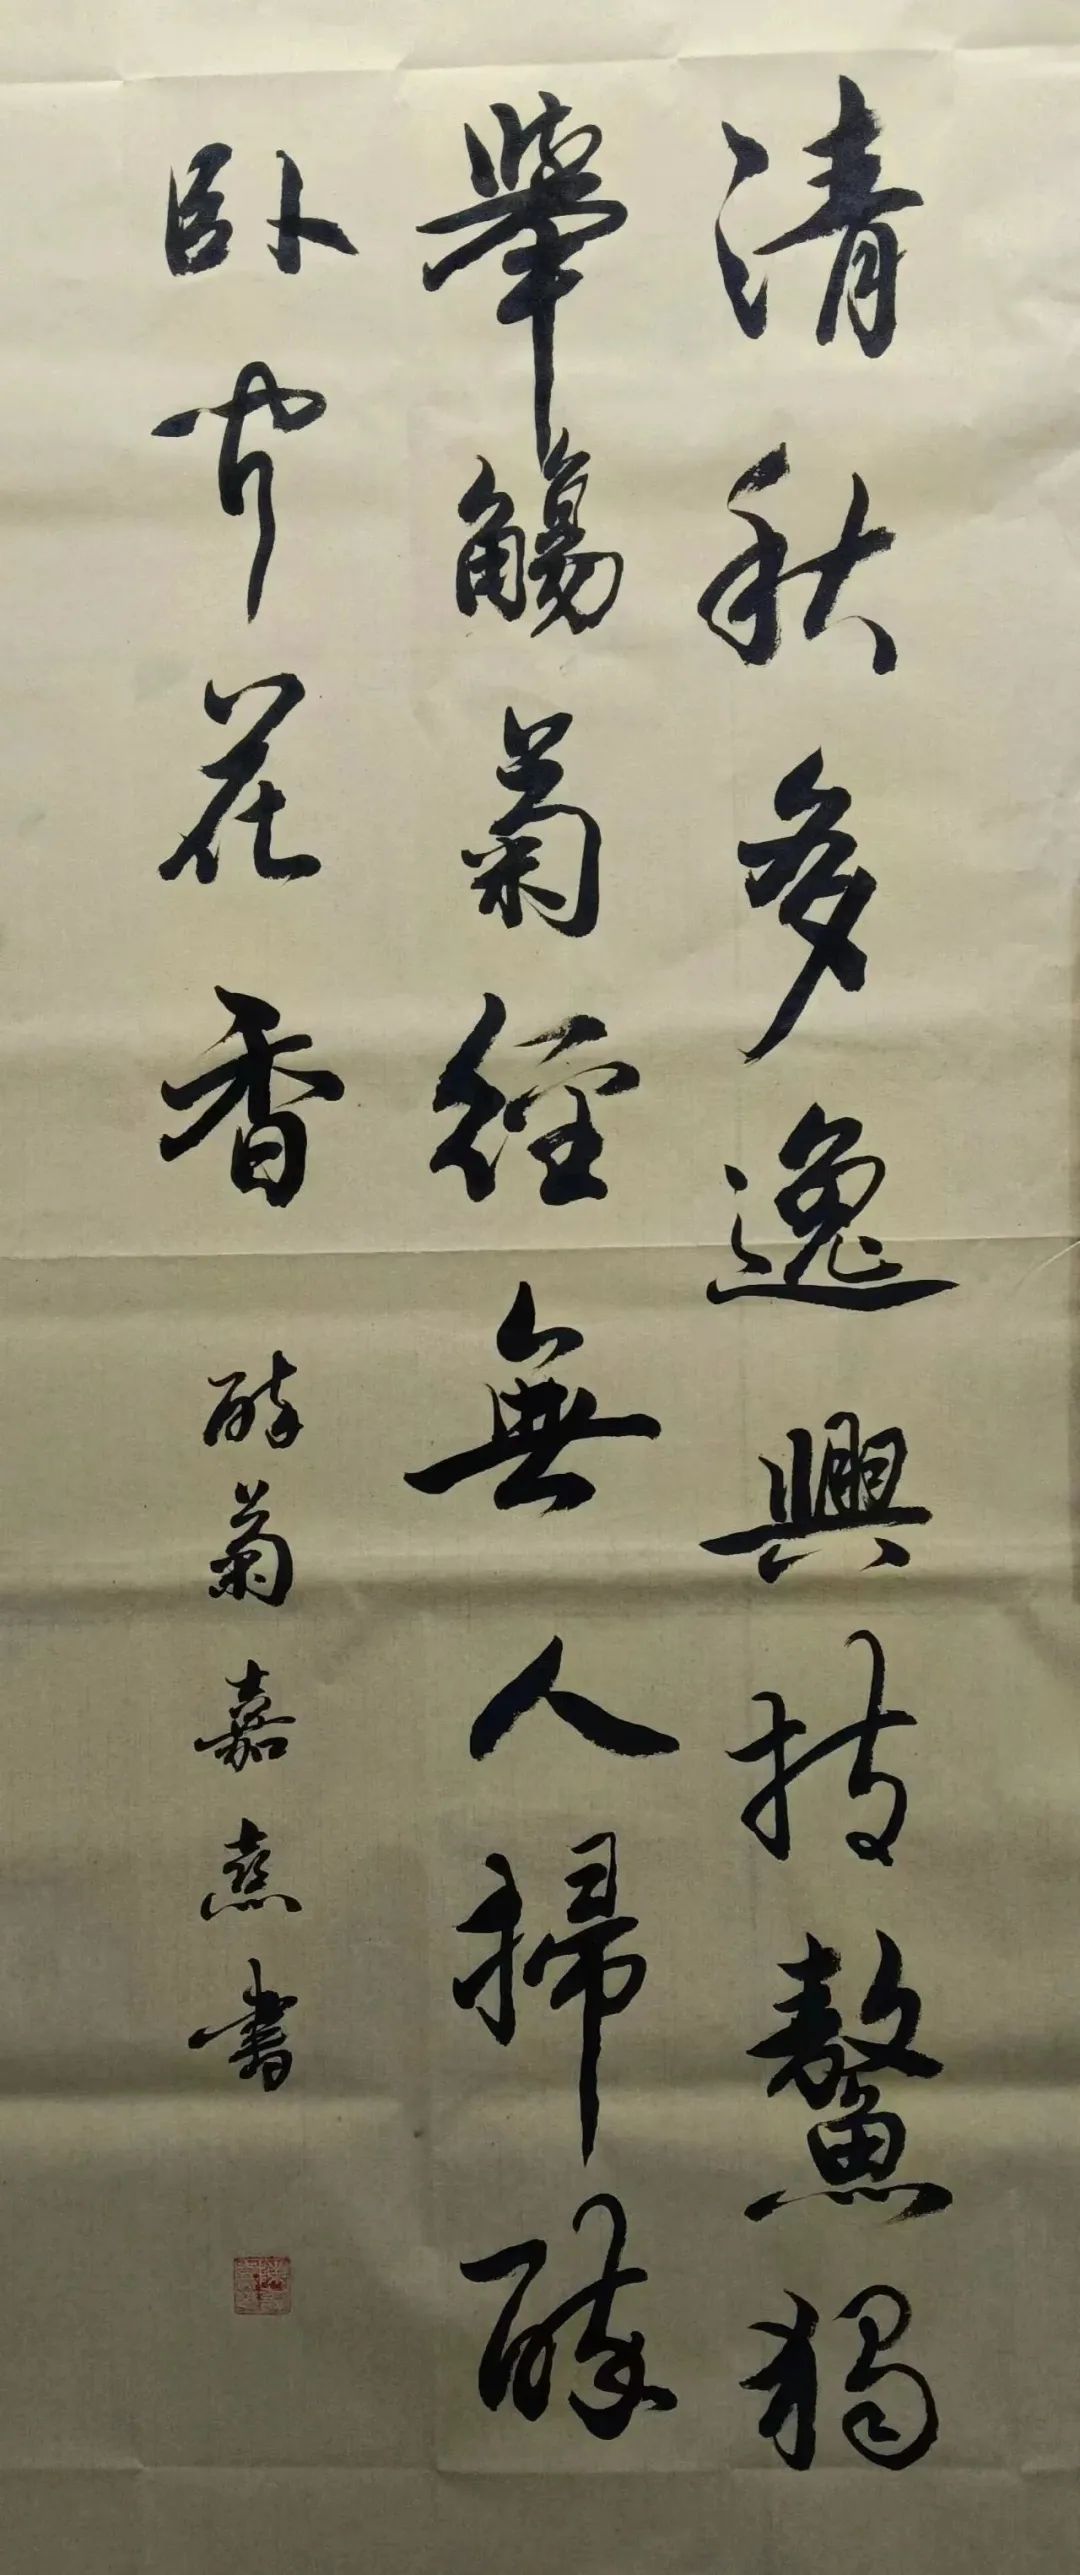 清秋多逸興持鰲獨
舉觴菊徑無人掃醉
卧聞花香
醉菊嘉書